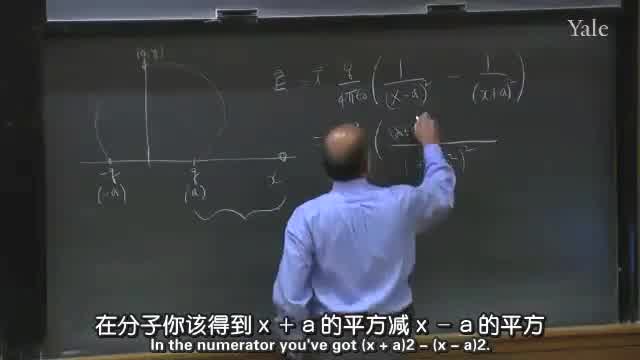 Yale
(0,y)
E⃗ = i⃗ q/4πε₀ ( 1/(x-a)² - 1/(x+a)² )
-q
q
x
(-a)
(a)
在分子你该得到 x + a 的平方减 x - a 的平方
In the numerator you've got (x + a)2 - (x - a)2.